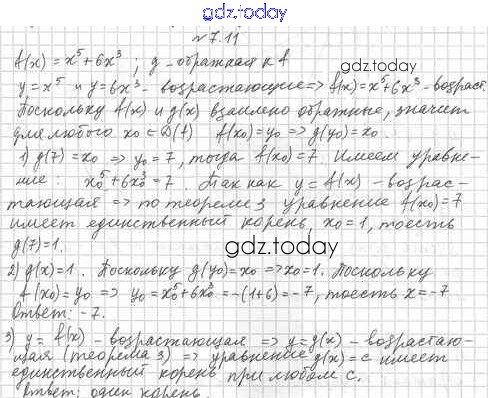 gdz.today
№7.11
f(x) = x⁵ + 6x³ ; g - обратная к f
y = x⁵ и y = 6x³ - возрастающие => f(x) = x⁵ + 6x³ - возраст.
Поскольку f(x) и g(x) взаимно обратные, значит
для любого x₀ ∈ D(f) f(x₀) = y₀ => g(y₀) = x₀.
1) g(7) = x₀ => y₀ = 7, тогда f(x₀) = 7. Имеем уравне-
ние: x₀⁵ + 6x₀³ = 7. Так как y = f(x) - возрас-
тающая => по теореме 3 уравнение f(x₀) = 7
имеет единственный корень, x₀ = 1, то есть
g(7) = 1.
gdz.today
2) g(x) = 1. Поскольку g(y₀) = x₀ => x₀ = 1. Поскольку
f(x₀) = y₀ => y₀ = x₀⁵ + 6x₀³ = -(1+6) = -7, то есть x = -7
Ответ: -7.
3) y = f(x) - возрастающая => y = g(x) - возрастаю-
щая (теорема 3) => уравнение g(x) = c имеет
единственный корень при любом c.
Ответ: один корень.
gdz.today